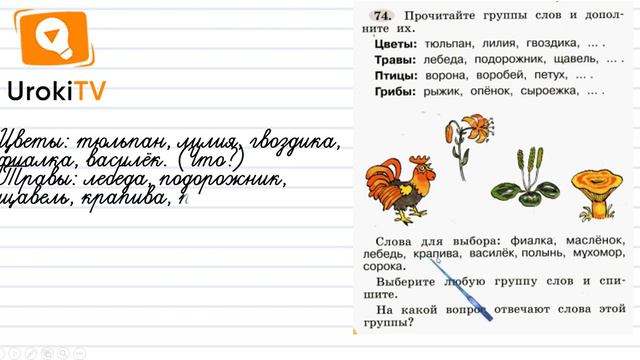 UrokiTV
Цветы: тюльпан, лилия, гвоздика,
фиалка, василёк. (что?)
Травы: лебеда, подорожник,
щавель, крапива, п
74. Прочитайте группы слов и допол-
ните их.
Цветы: тюльпан, лилия, гвоздика, ... .
Травы: лебеда, подорожник, щавель, ... .
Птицы: ворона, воробей, петух, ... .
Грибы: рыжик, опёнок, сыроежка, ... .
Слова для выбора: фиалка, маслёнок,
лебедь, крапива, василёк, полынь, мухомор,
сорока.
Выберите любую группу слов и спи-
шите.
На какой вопрос отвечают слова этой
группы?